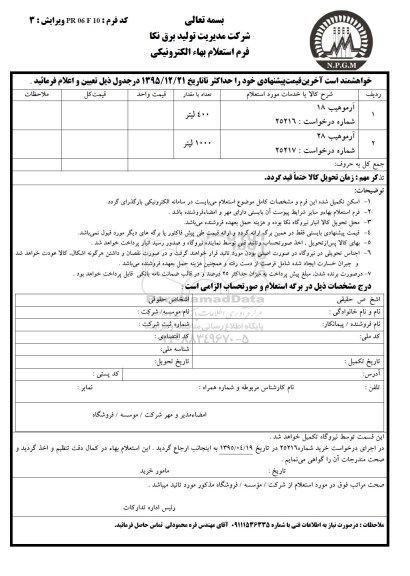 بسمه تعالی
کد فرم : PR 06 F 10 ویرایش : ۳
شرکت مدیریت تولید برق نکا
فرم استعلام بهاء الکترونیکی
N.P.G.M
خواهشمند است آخرین قیمت پیشنهادی خود را حداکثر تا تاریخ ۱۳۹۵/۱۲/۲۱ درجدول ذیل تعیین و اعلام فرمائید .
ردیف شرح کالا یا خدمات مورد استعلام تعداد یا مقدار قیمت واحد قیمت کل ملاحظات
۱ آرموهیب ۱۸ ۴۰۰ لیتر
شماره درخواست : ۲۵۲۱۶
۲ آرموهیب ۲۸ ۱۰۰۰ لیتر
شماره درخواست : ۲۵۲۱۷
جمع کل به حروف:
تذکر مهم : زمان تحویل کالا حتماً قید گردد.
توضیحات:
۱- اسکن تکمیل شده این فرم و مشخصات کامل موضوع استعلام می‌بایست در سامانه الکترونیکی بارگذاری گردد.
۲- فرم استعلام بهاء و سایر شرایط پیوست آن بایستی دارای مهر و امضاء فروشنده باشد .
۳- محل تحویل کالا انبار نیروگاه نکا بوده و هزینه حمل بعهده فروشنده می‌باشد.
۴- قیمت پیشنهادی بایستی فقط در همین برگ ارائه گردد و ارائه قیمت طی پیش فاکتور یا برگه های دیگر مورد قبول نمی‌باشد.
۵- بهای کالا پس از تحویل ، اخذ صورتحساب و تایید فنی توسط نماینده نیروگاه و صدور رسید انبار پرداخت خواهد شد .
۶- اجناس تحویلی در نیروگاه در صورت اصلی بودن مورد تائید قرار خواهند گرفت و در صورت نقصان و داشتن هرگونه اشکال، کالا عودت خواهد شد
و جبران خسارت ایجاد شده شامل فرصت از دست رفته و همچنین هزینه حمل بعهده فروشنده می‌باشد.
۷- درصورت برنده شدن، مبلغ پیش پرداخت به میزان حداکثر ۲۵ درصد و در قالب ضمانت نامه بانکی قابل پرداخت خواهد بود .
درج مشخصات ذیل در برگه استعلام و صورتحساب الزامی است :
اشخاص حقیقی اشخاص حقوقی
نام و نام خانوادگی : نام موسسه/ شرکت :
نام فروشنده / پیمانکار: شماره ثبت شرکت :
کد ملی: کد اقتصادی :
شناسه ملی:
تاریخ تکمیل : تاریخ تحویل:
آدرس: کد پستی :
تلفن : نام کارشناس مربوطه و شماره همراه : نمابر :
امضاءمدیر و مهر شرکت / موسسه / فروشگاه
این قسمت توسط نیروگاه تکمیل خواهد شد .
در اجرای درخواست خرید شماره ۲۵۲۱۶ در تاریخ ۱۳۹۵/۰۴/۱۹ به اینجانب ارجاع گردید . این استعلام بهاء در کمال دقت تنظیم و اخذ گردید و
صحت مندرجات آن را گواهی می‌نمایم .
تاریخ : مامور خرید
صحت مراتب فوق در مورد استعلام از شرکت / مؤسسه / فروشگاه مذکور مورد تائید میباشد .
رئیس اداره تدارکات
ملاحظات : درصورت نیاز به اطلاعات فنی با شماره ۰۹۱۱۱۵۳۶۳۳۵ آقای مهندس قره محمودلی تماس حاصل فرمائید.